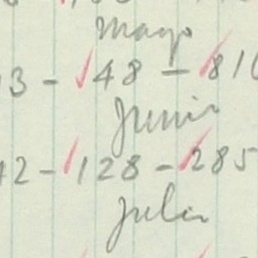 Mayo
3 - 48 - 810
Junio
42 - 128 - 285
Julio